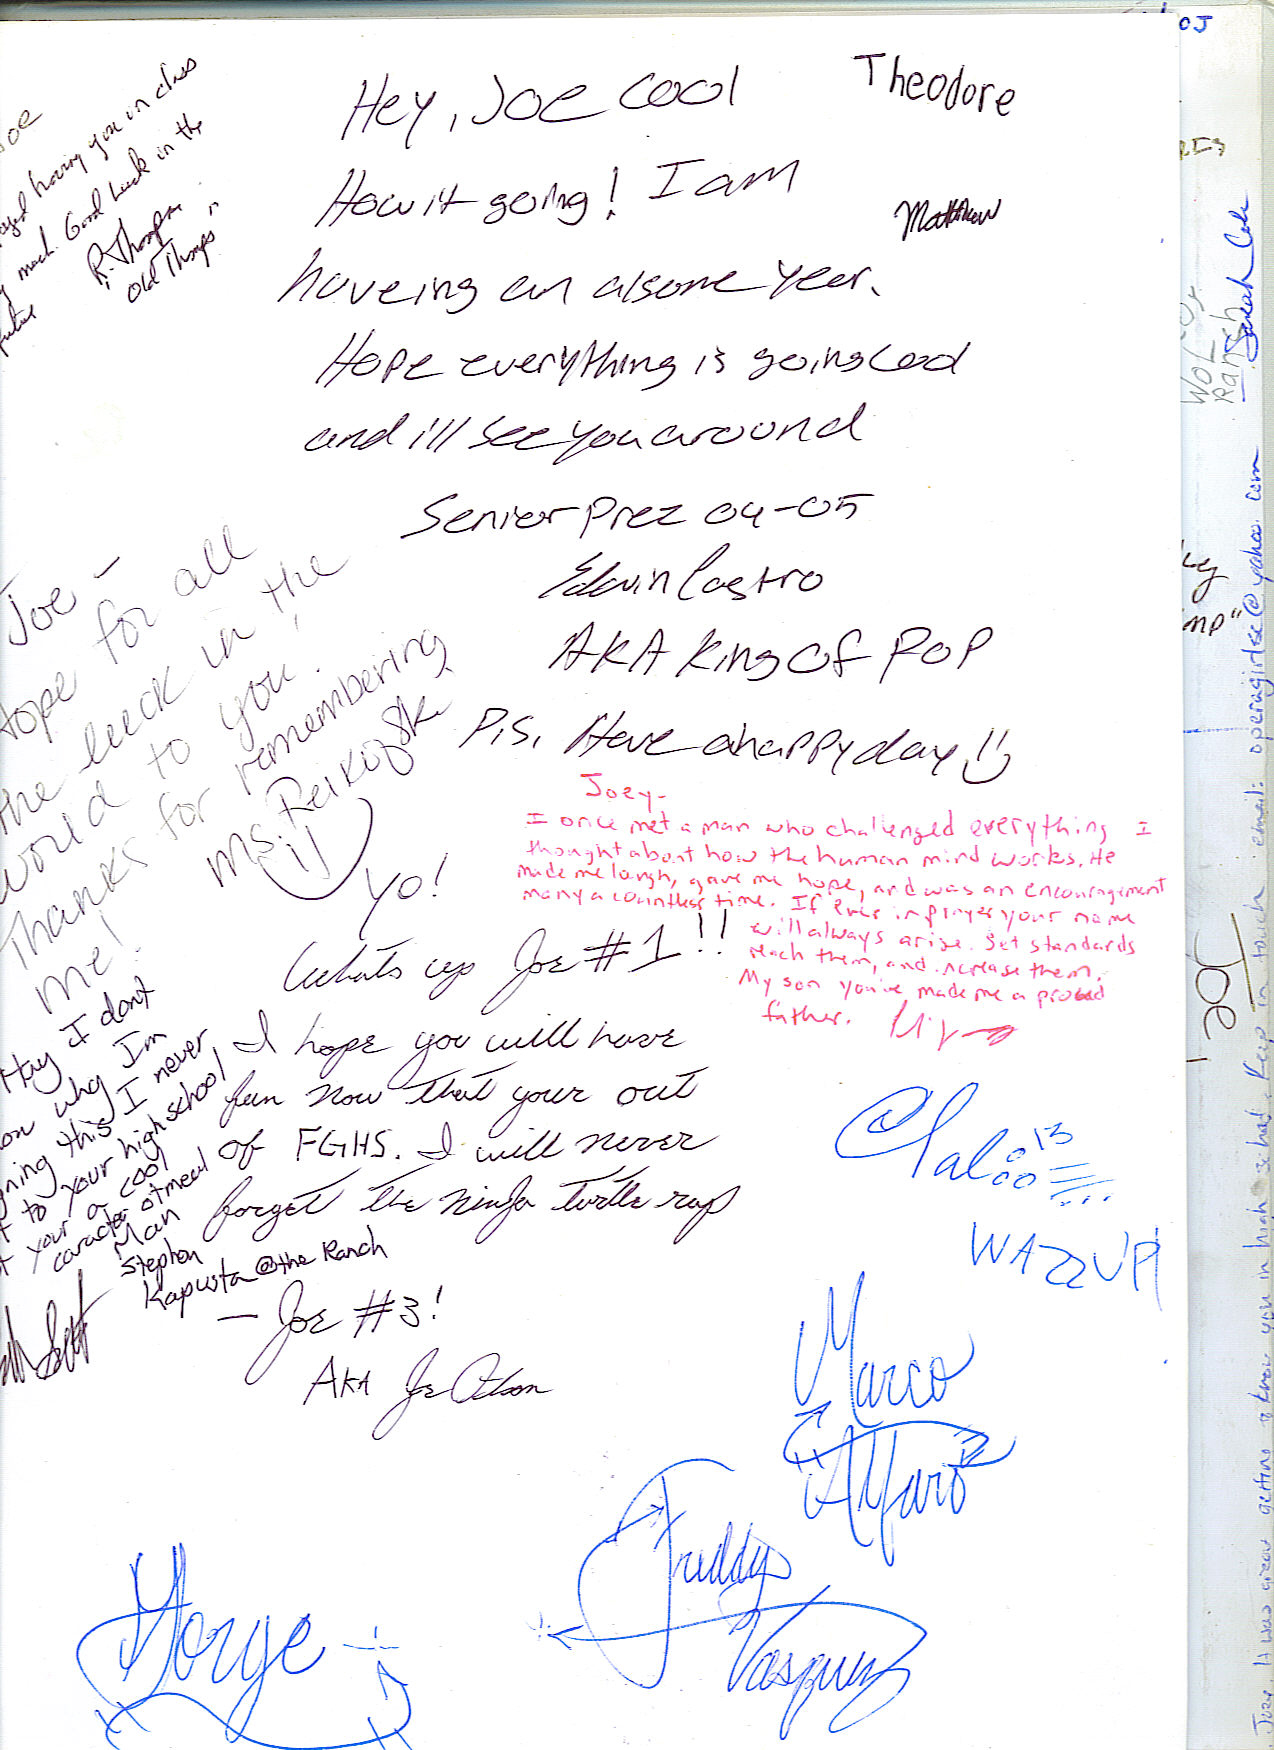 Hey, Joe Cool
How it going! I am
haveing an alsome year.
Hope everything is going Cool
and i'll see you around
Senior Prez 04-05
Edwin Castro
AKA King OF POP
P.S. Have a happy day
Theodore
Matthew
Joe
having you in class
much. Good luck in the
future
R. Thompson
"Old Thomps"
Joe -
Hope for all
the luck in the
world to you!
Thanks for remembering
me!
Ms. Reikofski
Joey-
I once met a man who challenged everything I
thought about how the human mind works. He
made me laugh, gave me hope, and was an encouragement
many a countless time. If ever in prayer your name
will always arise. Set standards
reach them, and increase them.
My son you've made me a proud
father.
Yo!
Whats up Joe #1!!
I hope you will have
fun now that your out
of FGHS. I will never
forget the ninja turtle rap
— Joe #3!
AKA Joe Olson
Hay I dont
why Im
this I never
to your high school
your a cool
caracter otmeal
Man
Stephen
Kapusta @ the Ranch
13
WAZZUP!
Marco
Alfaro
Freddy
Vasquez
Jorge
OJ
Sarah Cole
Joe
Joey, It was great getting to know you in high school. Keep in touch email: operagirlsc@yahoo.com